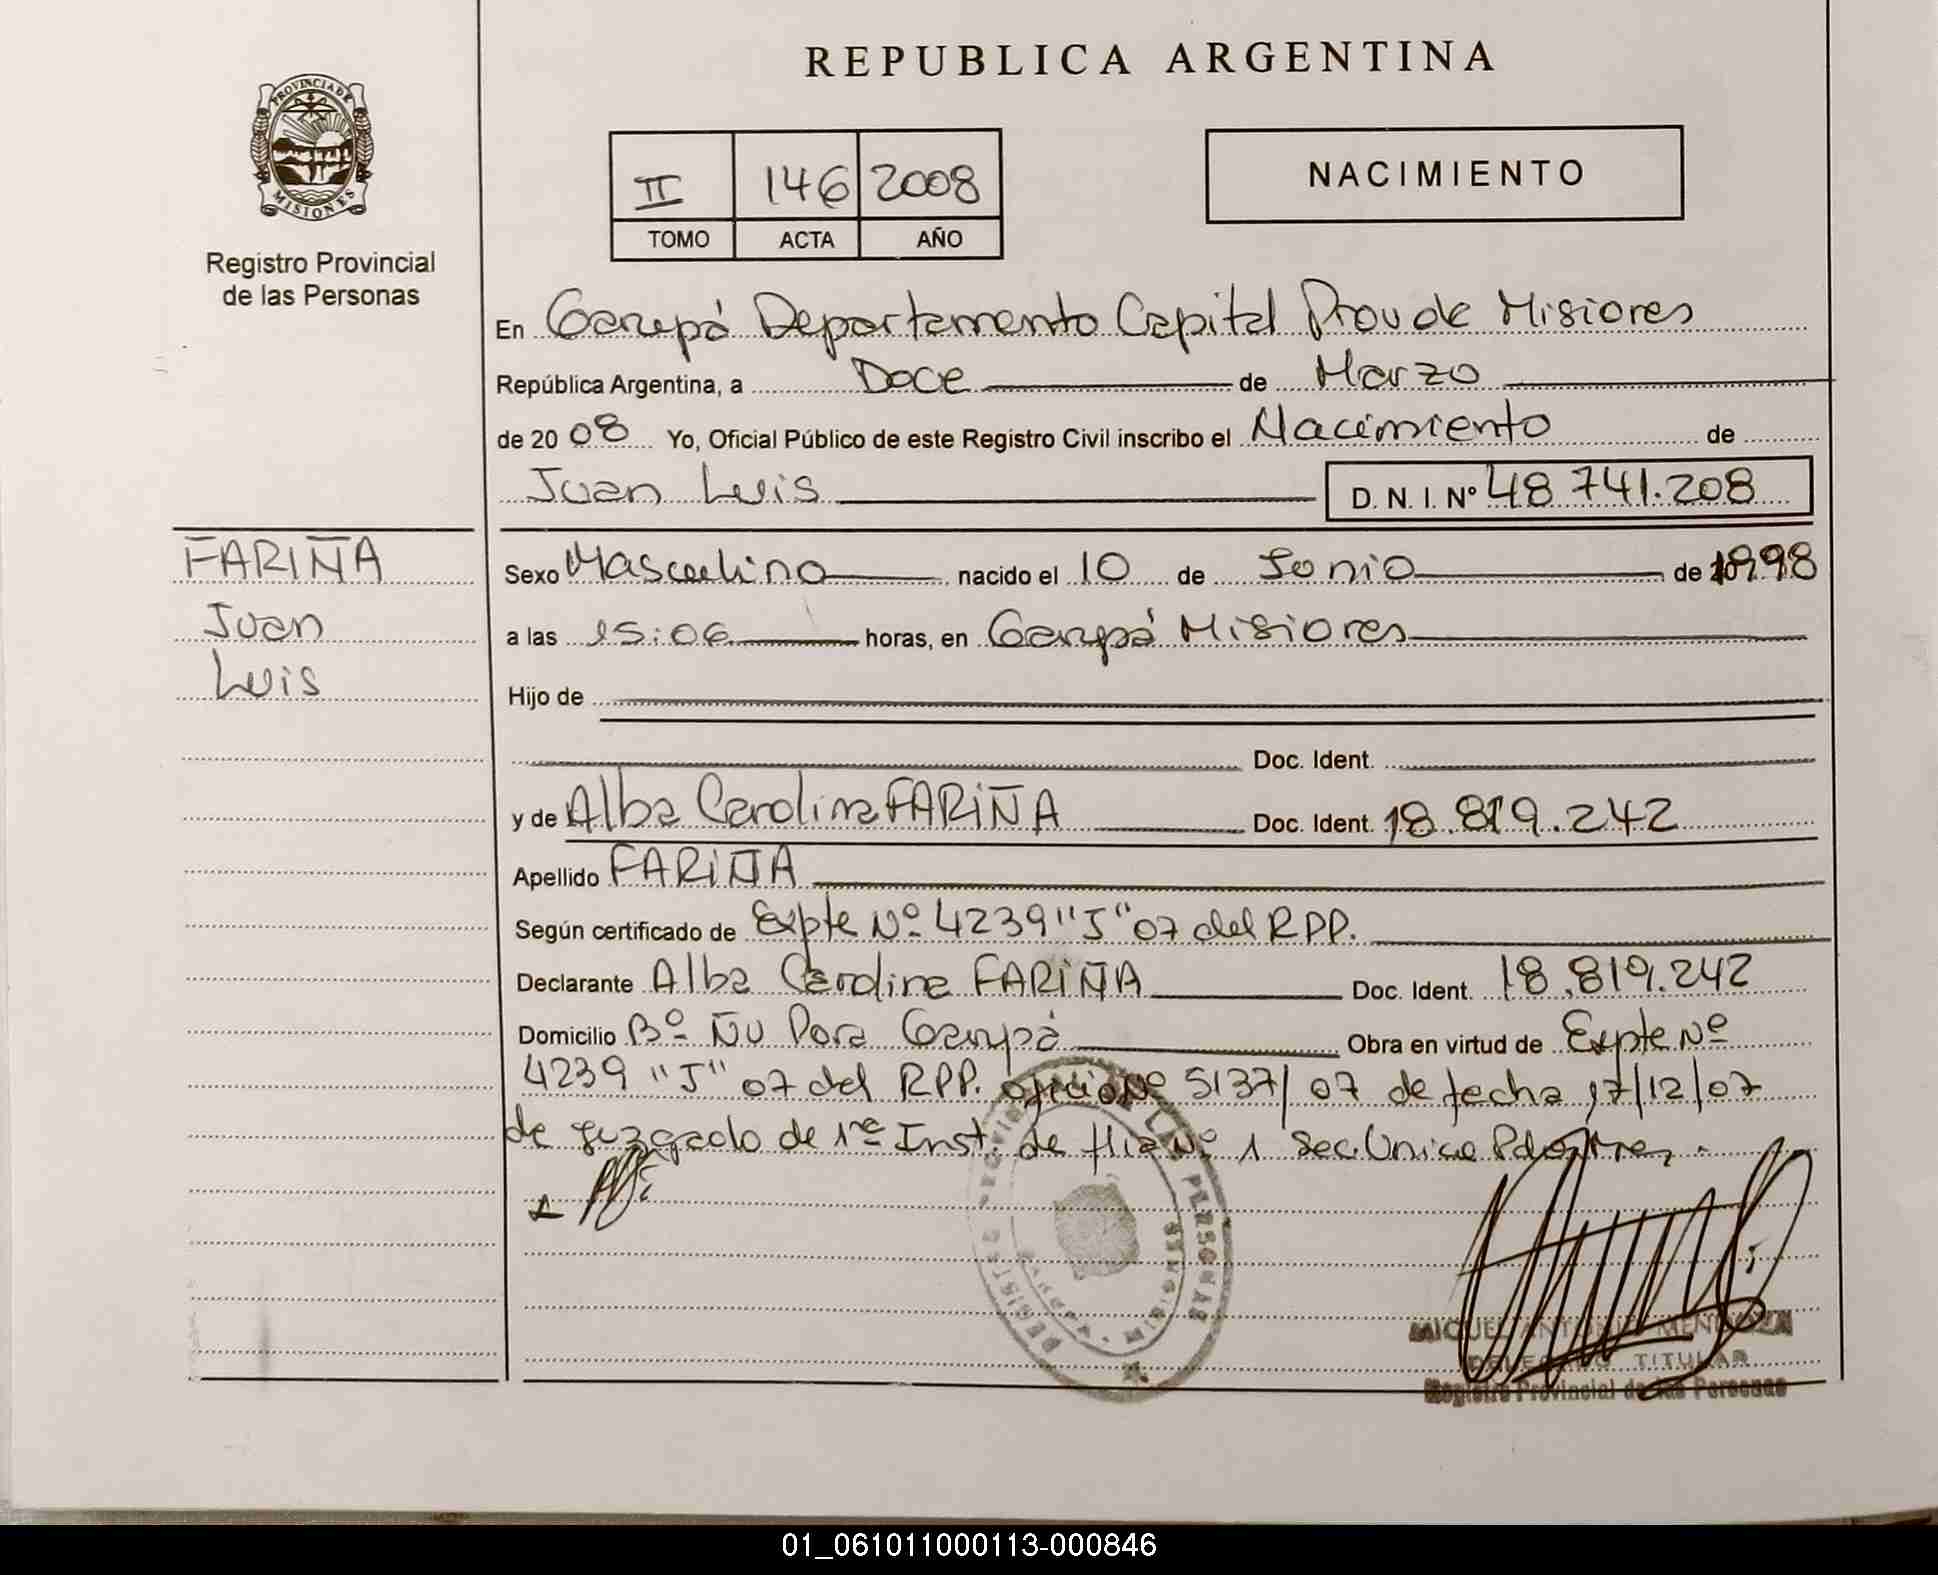 REPUBLICA ARGENTINA
PROVINCIA DE
MISIONES
Registro Provincial
de las Personas
II 146 2008
TOMO ACTA AÑO
NACIMIENTO
En Garupá Departamento Capital Prov de Misiones
República Argentina, a Doce de Marzo
de 2008 Yo, Oficial Público de este Registro Civil inscribo el Nacimiento de
Juan Luis D. N. I. Nº 48 741.208
FARIÑA
Juan
Luis
Sexo Masculino nacido el 10 de Junio de 1998
a las 15:06 horas, en Garupá Misiones
Hijo de
Doc. Ident.
y de Alba Carolina FARIÑA Doc. Ident. 18.819.242
Apellido FARIÑA
Según certificado de Expte Nº 4239 "J" 07 del RPP.
Declarante Alba Carolina FARIÑA Doc. Ident. 18.819.242
Domicilio Bº Ñu Pora Garupá Obra en virtud de Expte Nº
4239 "J" 07 del RPP. oficio Nº 5137/07 de fecha 17/12/07
de Juzgado de 1ra Inst. de Flia Nº 1 Sec. Unica
MIGUEL ANTONIO MENDOZA
DELEGADO TITULAR
Registro Provincial de las Personas
01_061011000113-000846